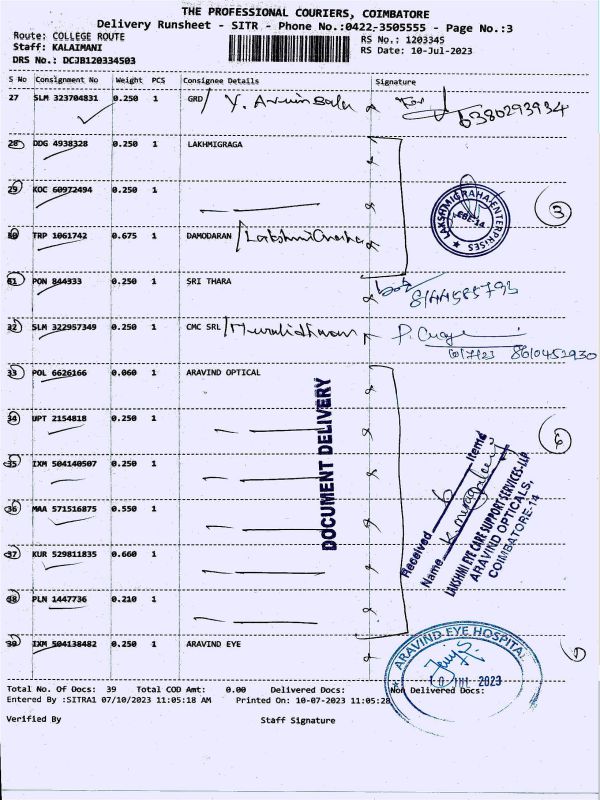 THE PROFESSIONAL COURIERS, COIMBATORE
Delivery Runsheet - SITR - Phone No.:0422-3505555 - Page No.:3
Route: COLLEGE ROUTE
RS No.: 1203345
Staff: KALAIMANI
RS Date: 10-Jul-2023
DRS No.: DCJB120334503
S No Consignment No Weight PCS Consignee Details Signature
27 SLM 323704831 0.250 1 GRD/ For
6380293934
28 DDG 4938328 0.250 1 LAKHMIGRAGA
29 KOC 60972494 0.250 1
LAKSHMIGRAHA ENTERPRISES
CBE-14
3
30 TRP 1061742 0.675 1 DAMODARAN
31 PON 844333 0.250 1 SRI THARA
8144585793
32 SLM 322957349 0.250 1 CMC SRL/Muralidharan
10/7/23 8610452930
33 POL 6626166 0.060 1 ARAVIND OPTICAL
34 UPT 2154818 0.250 1
6
35 IXM 504140507 0.250 1
36 MAA 571516875 0.550 1
37 KUR 529811835 0.660 1
38 PLN 1447736 0.210 1
DOCUMENT DELIVERY
Received 6 Items
Name K.
LAKSHMI EYE CARE SUPPORT SERVICES-LLP
ARAVIND OPTICALS,
COIMBATORE-14
39 IXM 504138482 0.250 1 ARAVIND EYE
ARAVIND EYE HOSPITAL
10 JUL 2023
1
Total No. Of Docs: 39 Total COD Amt: 0.00 Delivered Docs: Non Delivered Docs:
Entered By :SITRA1 07/10/2023 11:05:18 AM Printed On: 10-07-2023 11:05:28
Verified By Staff Signature